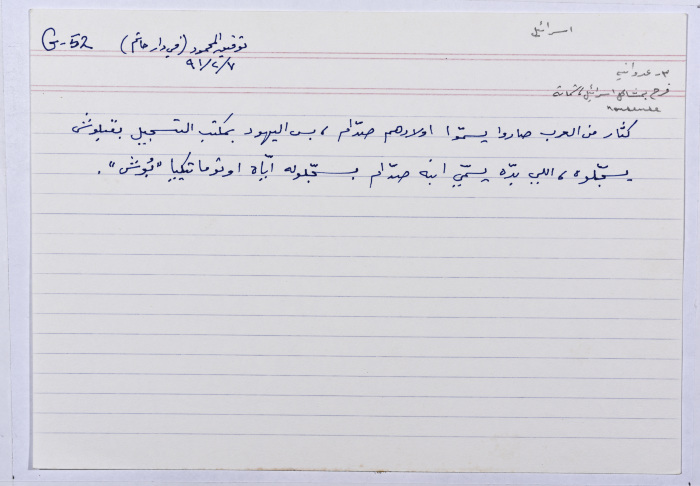 اسرائيل
G-52
توفيق المحمود (في دار حاتم)
٩١/٢/٧
٣- عدوانية
فرح بمشاكل اسرائيل /شماتة
كثار من العرب صاروا يسمّوا اولادهم صدّام ، بس اليهود بمكتب التسجيل بقبلوش
يسجّلوه ، اللي بدّه يسمّي ابنه صدّام بسجّلوله ايّاه اوتوماتيكياً "بُوش" .